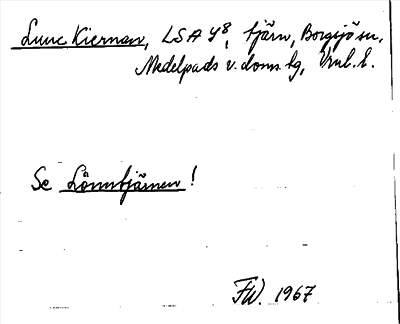 Lunc Kiernan, LSA Y8, tjärn, Borgsjö sn,
Medelpads v. doms. hg, Vnl. l.
Se Lönntjärnen!
FW. 1967